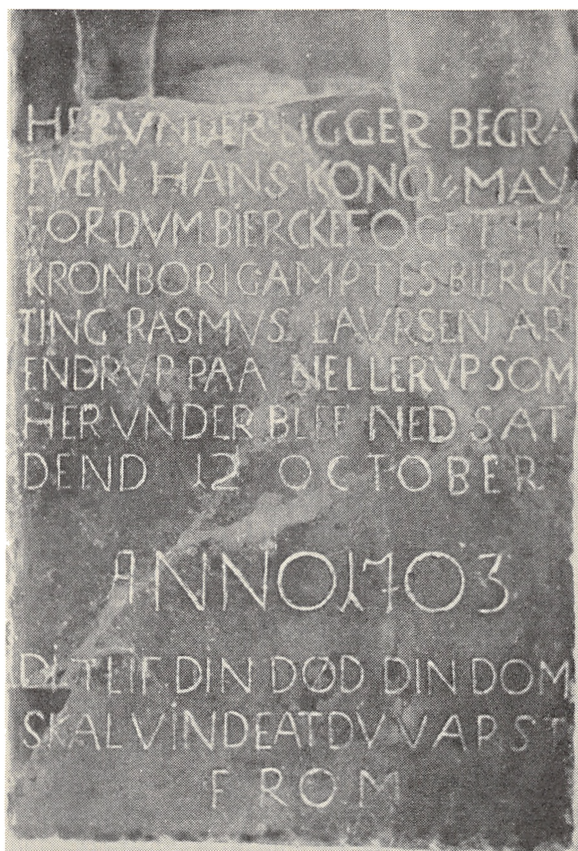 HER VNDER LIGGER BEGRA
FVEN HANS KONGL MAY
FORDVM BIERCKEFOGET THIL
KRONBORIGAMPTES BIERCKE
TING RASMVS LAVRSEN AR
ENDRVP PAA NELLERVP SOM
HER VNDER BLEF NED SAT
DEND 12 OCTOBER
ANNO 1703
DIT LIF DIN DØD DIN DOM
SKAL VINDE AT DV VARST
FROM